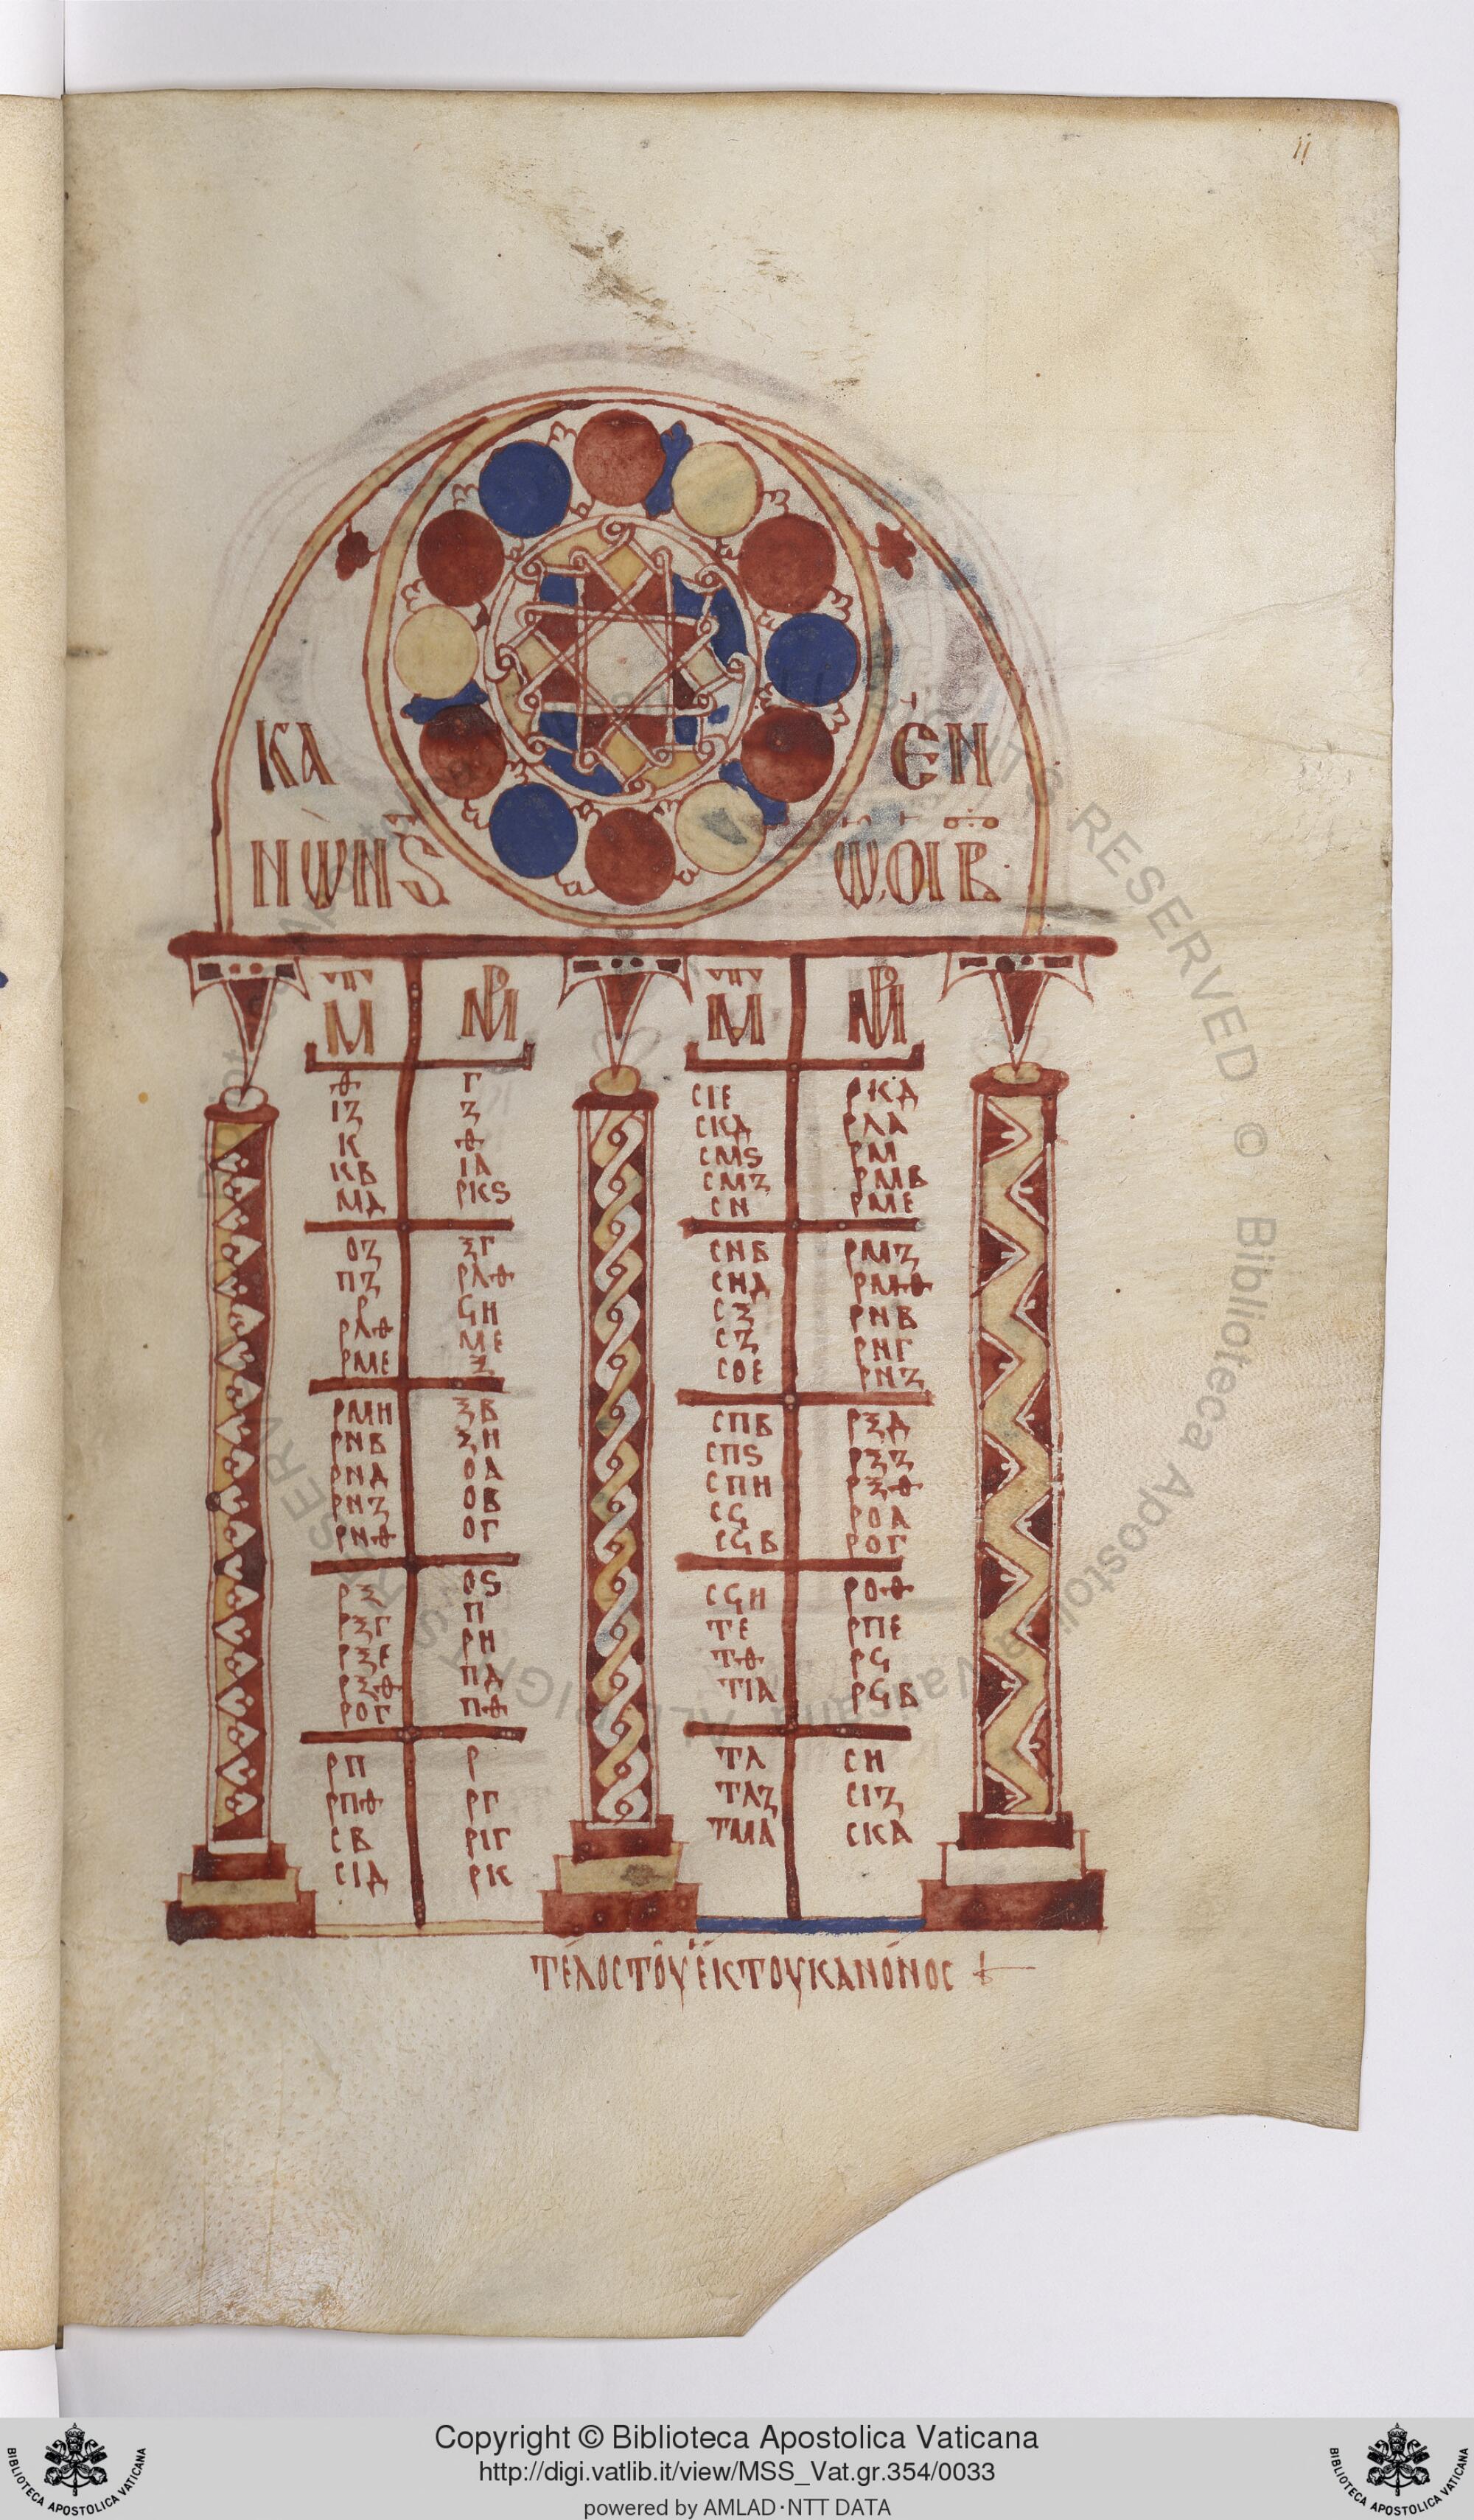 11
ΚΑ
ΝΩΝ Ϛ
ΕΝ
Ω ΟΙ Β
ΜΤ
ΜΡ
ΜΤ
ΜΡ
Θ Γ
ΙΖ Ζ
Κ Θ
ΚΒ ΙΑ
ΜΔ ΡΚϚ
ΟΖ ΞΓ
ΠΖ ΡΛΘ
Ρ ϞΗ
ΡΛΘ ΜΕ
ΡΜΕ Ξ
ΡΜΗ ΞΒ
ΡΝΒ ΞΗ
ΡΝΔ ΟΑ
ΡΝΖ ΟΒ
ΡΝΘ ΟΓ
ΡΞ ΟϚ
ΡΞΓ Π
ΡΞΕ ΡΗ
ΡΞΘ ΠΔ
ΡΟΓ ΠΘ
ΡΠ Ρ
ΡΠΘ ΡΓ
ΣΒ ΡΙΓ
ΣΙΔ ΡΚ
ϹΙΕ ΡΚΔ
ϹΚΔ ΡΛΑ
ϹΜϚ ΡΜ
ϹΜΖ ΡΜΒ
ϹΝ ΡΜΕ
ϹΝΒ ΡΜΖ
ϹΝΔ ΡΜΘ
ϹΞ ΡΝΒ
ϹΖ ΡΝΓ
ϹΟΕ ΡΝΖ
ϹΠΒ ΡΞΔ
ϹΠϚ ΡΞΖ
ϹΠΗ ΡΞΘ
ϹϞ ΡΟΑ
ϹϞΒ ΡΟΓ
ϹϞΗ ΡΟΘ
ΤΕ ΡΠΕ
ΤΘ ΡϞ
ΤΙΑ ΡϞΒ
ΤΛ ϹΗ
ΤΛΖ ϹΙΖ
ΤΜΑ ϹΚΑ
ΤΕΛΟϹ ΤΟΥ ΕΚΤΟΥ ΚΑΝΟΝΟϹ
Copyright © Biblioteca Apostolica Vaticana
http://digi.vatlib.it/view/MSS_Vat.gr.354/0033
powered by AMLAD·NTT DATA
BIBLIOTECA APOSTOLICA VATICANA
BIBLIOTECA APOSTOLICA VATICANA